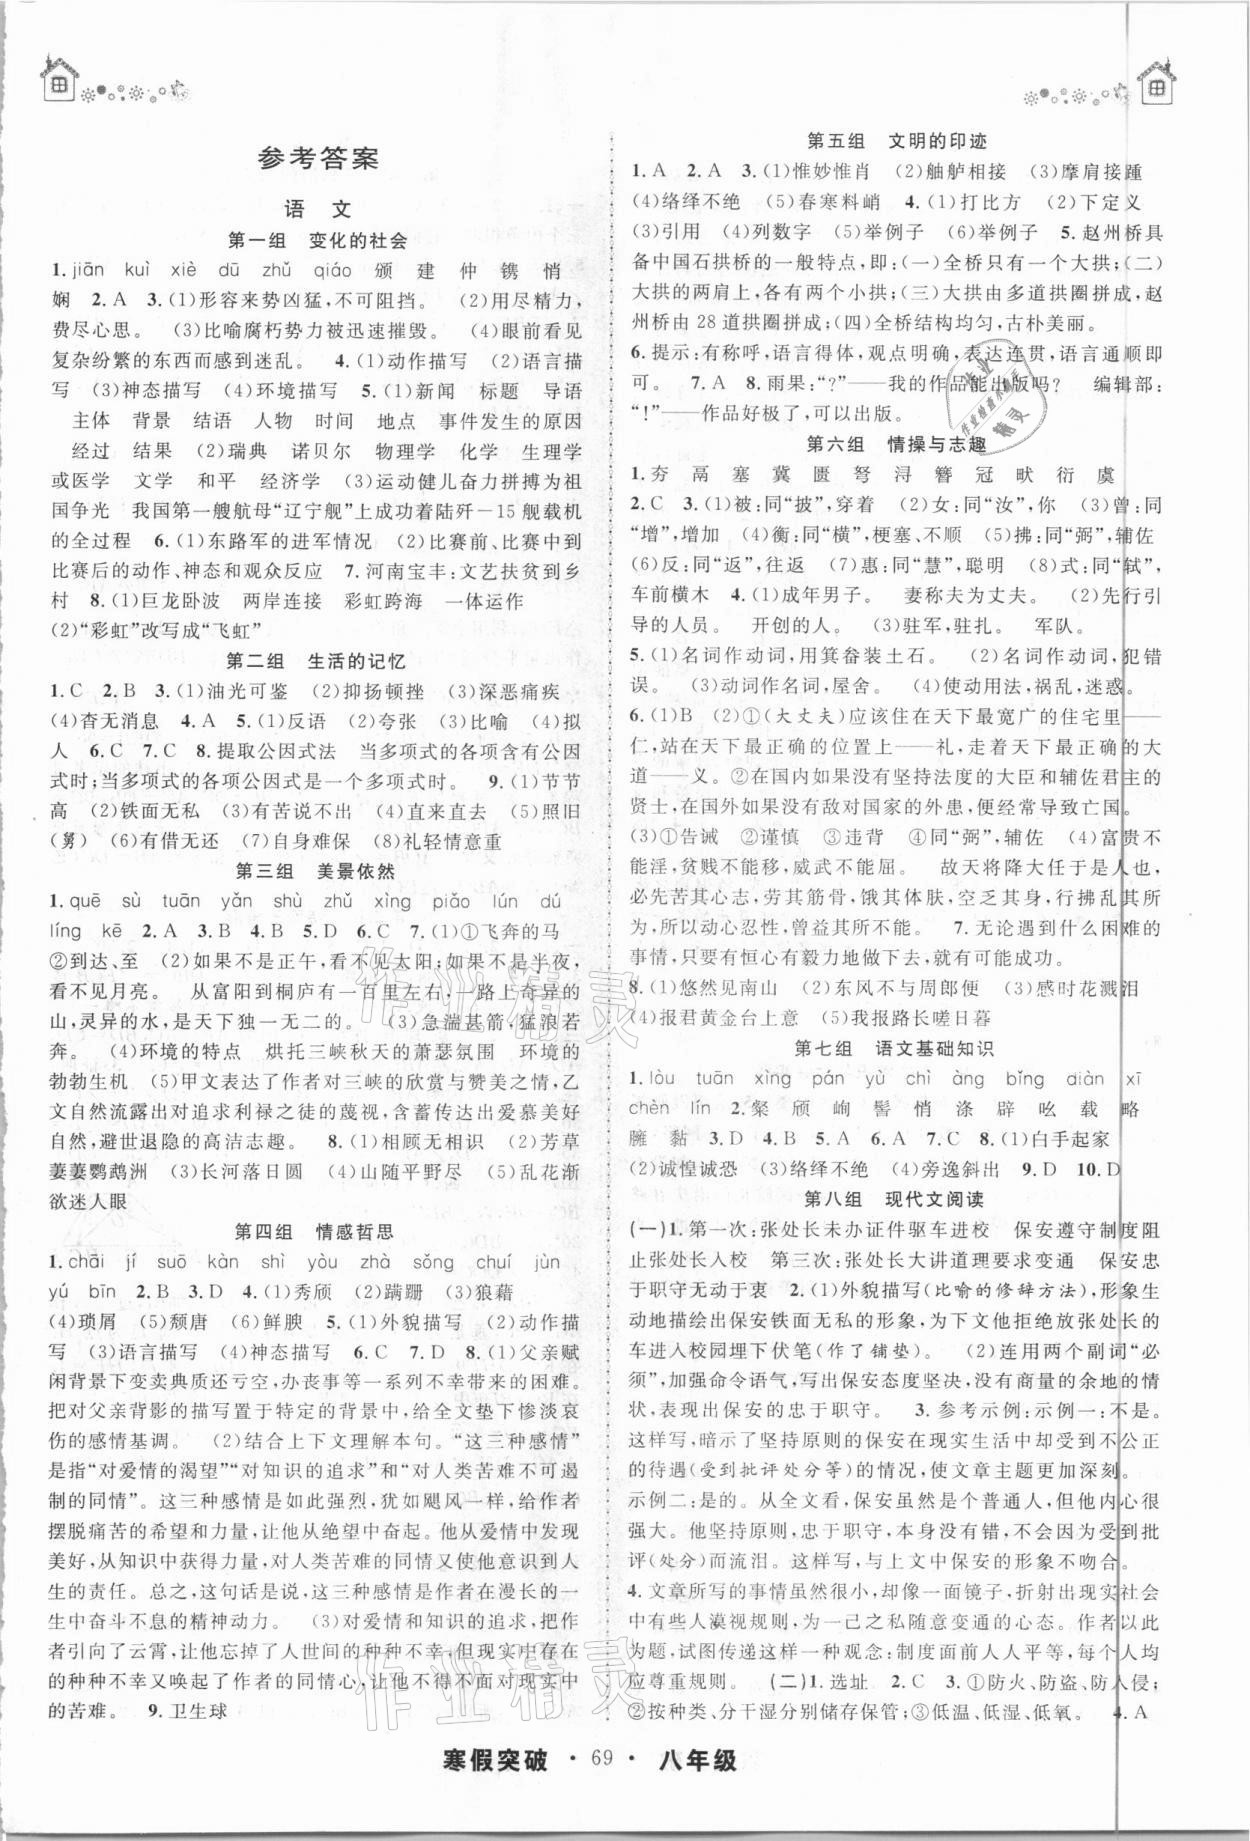 参考答案
语 文
第一组 变化的社会
1.jiān kuì xiè dū zhǔ qiáo 颁 建 仲 镌 悄
娴 2.A 3.(1)形容来势凶猛,不可阻挡。 (2)用尽精力,
费尽心思。 (3)比喻腐朽势力被迅速摧毁。 (4)眼前看见
复杂纷繁的东西而感到迷乱。 4.(1)动作描写 (2)语言描
写 (3)神态描写 (4)环境描写 5.(1)新闻 标题 导语
主体 背景 结语 人物 时间 地点 事件发生的原因
经过 结果 (2)瑞典 诺贝尔 物理学 化学 生理学
或医学 文学 和平 经济学 (3)运动健儿奋力拼搏为祖
国争光 我国第一艘航母“辽宁舰”上成功着陆歼－15 舰载机
的全过程 6.(1)东路军的进军情况 (2)比赛前、比赛中到
比赛后的动作、神态和观众反应 7.河南宝丰:文艺扶贫到乡
村 8.(1)巨龙卧波 两岸连接 彩虹跨海 一体运作
(2)“彩虹”改写成“飞虹”
第二组 生活的记忆
1.C 2.B 3.(1)油光可鉴 (2)抑扬顿挫 (3)深恶痛疾
(4)杳无消息 4.A 5.(1)反语 (2)夸张 (3)比喻 (4)拟
人 6.C 7.C 8.提取公因式法 当多项式的各项含有公因
式时;当多项式的各项公因式是一个多项式时。 9.(1)节节
高 (2)铁面无私 (3)有苦说不出 (4)直来直去 (5)照旧
(舅) (6)有借无还 (7)自身难保 (8)礼轻情意重
第三组 美景依然
1.quē sù tuān yǎn shù zhǔ xìng piǎo lún dú
líng kē 2.A 3.B 4.B 5.D 6.C 7.(1)①飞奔的马
②到达、至 (2)如果不是正午,看不见太阳;如果不是半夜,
看不见月亮。 从富阳到桐庐有一百里左右,一路上奇异的
山,灵异的水,是天下独一无二的。 (3)急湍甚箭,猛浪若
奔。 (4)环境的特点 烘托三峡秋天的萧瑟氛围 环境的
勃勃生机 (5)甲文表达了作者对三峡的欣赏与赞美之情,乙
文自然流露出对追求利禄之徒的蔑视,含蓄传达出爱慕美好
自然,避世退隐的高洁志趣。 8.(1)相顾无相识 (2)芳草
萋萋鹦鹉洲 (3)长河落日圆 (4)山随平野尽 (5)乱花渐
欲迷人眼
第四组 情感哲思
1.chāi jí suō kàn shì yòu zhà sǒng chuí jùn
yú bīn 2.B 3.D 4.(1)秀颀 (2)蹒跚 (3)狼藉
(4)琐屑 (5)颓唐 (6)鲜腴 5.(1)外貌描写 (2)动作描
写 (3)语言描写 (4)神态描写 6.C 7.D 8.(1)父亲赋
闲背景下变卖典质还亏空,办丧事等一系列不幸带来的困难。
把对父亲背影的描写置于特定的背景中,给全文垫下惨淡哀
伤的情感基调。 (2)结合上下文理解本句。“这三种感情”
是指“对爱情的渴望”“对知识的追求”和“对人类苦难不可遏
制的同情”。这三种感情是如此强烈,犹如飓风一样,给作者
摆脱痛苦的希望和力量,让他从绝望中奋起。他从爱情中发现
美好,从知识中获得力量,对人类苦难的同情又使他意识到人
生的责任。总之,这句话是说,这三种感情是作者在漫长的一
生中奋斗不息的精神动力。 (3)对爱情和知识的追求,把作
者引向了云霄,让他忘掉了人世间的种种不幸,但现实中存在
的种种不幸又唤起了作者的同情心,让他不得不面对现实中
的苦难。 9.卫生球
第五组 文明的印迹
1.A 2.A 3.(1)惟妙惟肖 (2)舳舻相接 (3)摩肩接踵
(4)络绎不绝 (5)春寒料峭 4.(1)打比方 (2)下定义
(3)引用 (4)列数字 (5)举例子 (6)举例子 5.赵州桥具
备中国石拱桥的一般特点,即:(一)全桥只有一个大拱;(二)
大拱的两肩上,各有两个小拱;(三)大拱由多道拱圈拼成,赵
州桥由 28 道拱圈拼成;(四)全桥结构均匀,古朴美丽。
6.提示:有称呼,语言得体,观点明确,表达连贯,语言通顺即
可。 7.A 8.雨果:“?”——我的作品能出版吗? 编辑部:
“!”——作品好极了,可以出版。
第六组 情操与志趣
1.夯 鬲 塞 冀 匮 弩 浔 簪 冠 畎 衍 虞
2.C 3.(1)被:同“披”,穿着 (2)女:同“汝”,你 (3)曾:同
“增”,增加 (4)衡:同“横”,梗塞、不顺 (5)拂:同“弼”,辅佐
(6)反:同“返”,返回 (7)惠:同“慧”,聪明 (8)式:同“轼”,
车前横木 4.(1)成年男子。 妻称夫为丈夫。 (2)先行引
导的人员。 开创的人。 (3)驻军,驻扎。 军队。
5.(1)名词作动词,用箕畚装土石。 (2)名词作动词,犯错
误。 (3)动词作名词,屋舍。 (4)使动用法,祸乱,迷惑。
6.(1)B (2)①(大丈夫)应该住在天下最宽广的住宅里——
仁,站在天下最正确的位置上——礼,走着天下最正确的大
道——义。②在国内如果没有坚持法度的大臣和辅佐君主的
贤士,在国外如果没有敌对国家的外患,便经常导致亡国。
(3)①告诫 ②谨慎 ③违背 ④同“弼”,辅佐 (4)富贵不
能淫,贫贱不能移,威武不能屈。 故天将降大任于是人也,
必先苦其心志,劳其筋骨,饿其体肤,空乏其身,行拂乱其所
为,所以动心忍性,曾益其所不能。 7.无论遇到什么困难的
事情,只要有恒心有毅力地做下去,就有可能成功。
8.(1)悠然见南山 (2)东风不与周郎便 (3)感时花溅泪
(4)报君黄金台上意 (5)我报路长嗟日暮
第七组 语文基础知识
1.lòu tuān xìng pán yù chì àng bǐng diàn xī
chèn lín 2.粲 颀 峋 髻 悄 涤 辟 吆 载 略
臃 黏 3.D 4.B 5.A 6.A 7.C 8.(1)白手起家
(2)诚惶诚恐 (3)络绎不绝 (4)旁逸斜出 9.D 10.D
第八组 现代文阅读
(一)1.第一次:张处长未办证件驱车进校 保安遵守制度阻
止张处长入校 第三次:张处长大讲道理要求变通 保安忠
于职守无动于衷 2.(1)外貌描写(比喻的修辞方法),形象生
动地描绘出保安铁面无私的形象,为下文他拒绝放张处长的
车进入校园埋下伏笔(作了铺垫)。 (2)连用两个副词“必
须”,加强命令语气,写出保安态度坚决,没有商量的余地的情
状,表现了保安的忠于职守。 3.参考示例:示例一:不是。
这样写,暗示了坚持原则的保安在现实生活中却受到不公正
的待遇(受到批评处分等)的情况,使文章主题更加深刻。
示例二:是的。从全文看,保安虽然是个普通人,但他内心很
强大。他坚持原则,忠于职守,本身没有错,不会因为受到批
评(处分)而流泪。这样写,与上文中保安的形象不吻合。
4.文章所写的事情虽然很小,却像一面镜子,折射出现实社会
中有些人漠视规则,为一己之私随意变通的心态。作者以此
为题,试图传递这样一种观念:制度面前人人平等,每个人均
应尊重规则。 (二)1.选址 2.C 3.①防火、防盗、防入侵;
②按种类、分干湿分别储存保管;③低温、低湿、低氧。 4.A
寒假突破 · 69 · 八年级
作业精灵
作业精灵